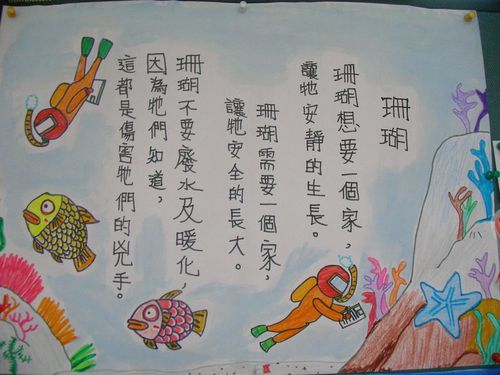 珊瑚
珊瑚想要一個家，
讓牠安靜的生長。
珊瑚需要一個家，
讓牠安全的長大。
珊瑚不要廢水及暖化，
因為牠們知道，
這都是傷害牠們的兇手。